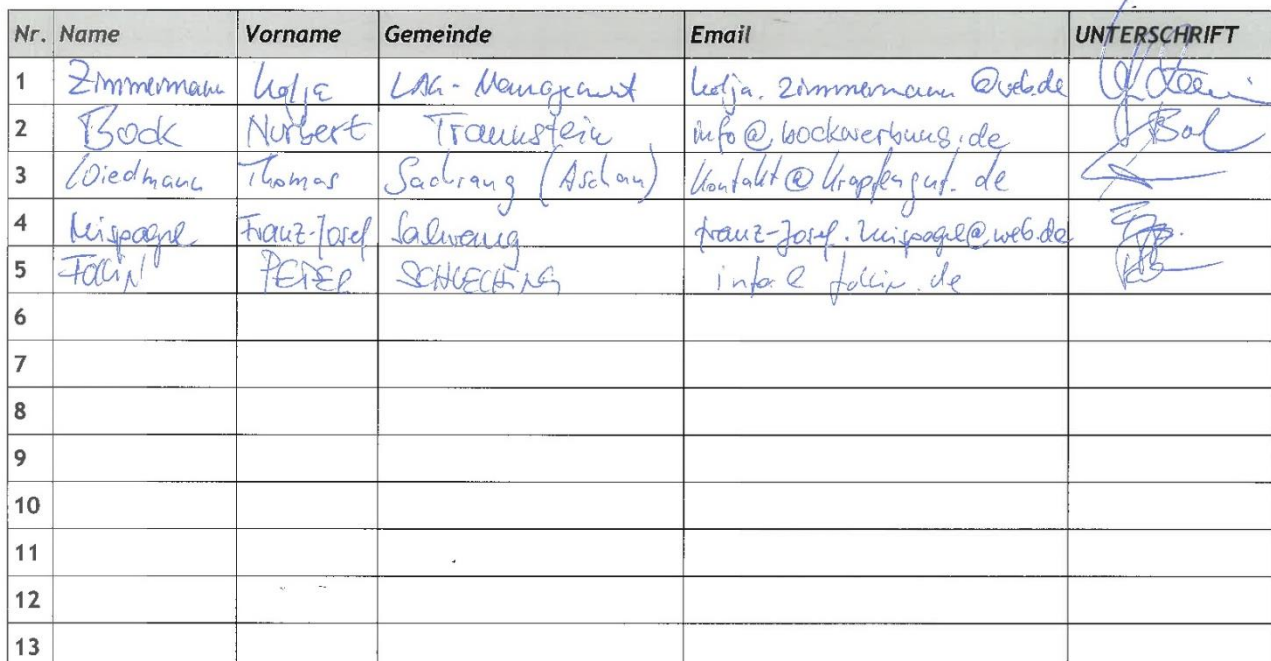 Nr. Name Vorname Gemeinde Email UNTERSCHRIFT
1 Zimmermann Kolja LAG-Management kolja.zimmermann@web.de
2 Bock Norbert Traunstein info@bockwerbung.de
3 Wiedmann Thomas Sachrang (Aschau) Kontakt@krapfengut.de
4 Mispagel Franz-Josef franz-josef.mispagel@web.de
5 Follin PETER SCHLECHING info@follin.de
6
7
8
9
10
11
12
13